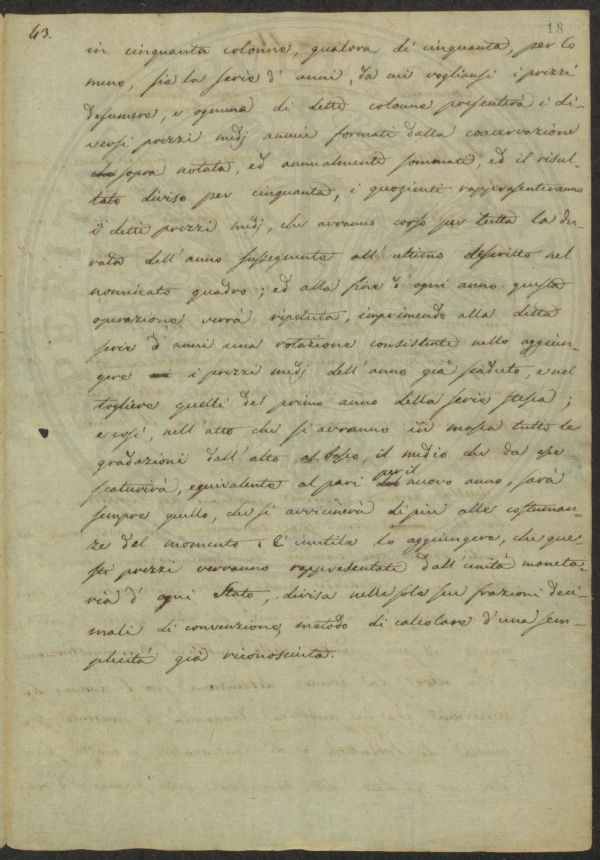 43.
18
in cinquanta colonne, qualora di cinquanta, per lo
meno, sia la serie d'anni, da cui vogliansi i prezzi
desumere, e ognuna di dette colonne presenterà i di-
versi prezzi medj annui formati dalla coacervazione
sopra notata, ed annualmente sommati, ed il risul-
tato diviso per cinquanta, i quozienti rappresenteranno
i detti prezzi medj, che avranno corso per tutta la du-
rata dell'anno susseguente all'ultimo descritto nel
nominato quadro; ed alla fine d'ogni anno questa
operazione verrà ripetuta, imprimendo alla detta
serie d'anni una rotazione consistente nello aggiun-
gere i prezzi medj dell'anno già scaduto, e nel
togliere quelli del primo anno della serie stessa;
e così, nell'atto che si avranno in mossa tutte le
gradazioni dall'alto al basso, il medio che da esse
scaturirà, equivalente al pari per il nuovo anno, sarà
sempre quello, che si avvicinerà di più alle costuman-
ze del momento. È inutile lo aggiungere, che que-
sti prezzi verranno rappresentati dall'unità moneta-
ria d'ogni Stato, divisa nelle sole sue frazioni deci-
mali di convenzione, metodo di calcolare d'una sem-
plicità già riconosciuta.